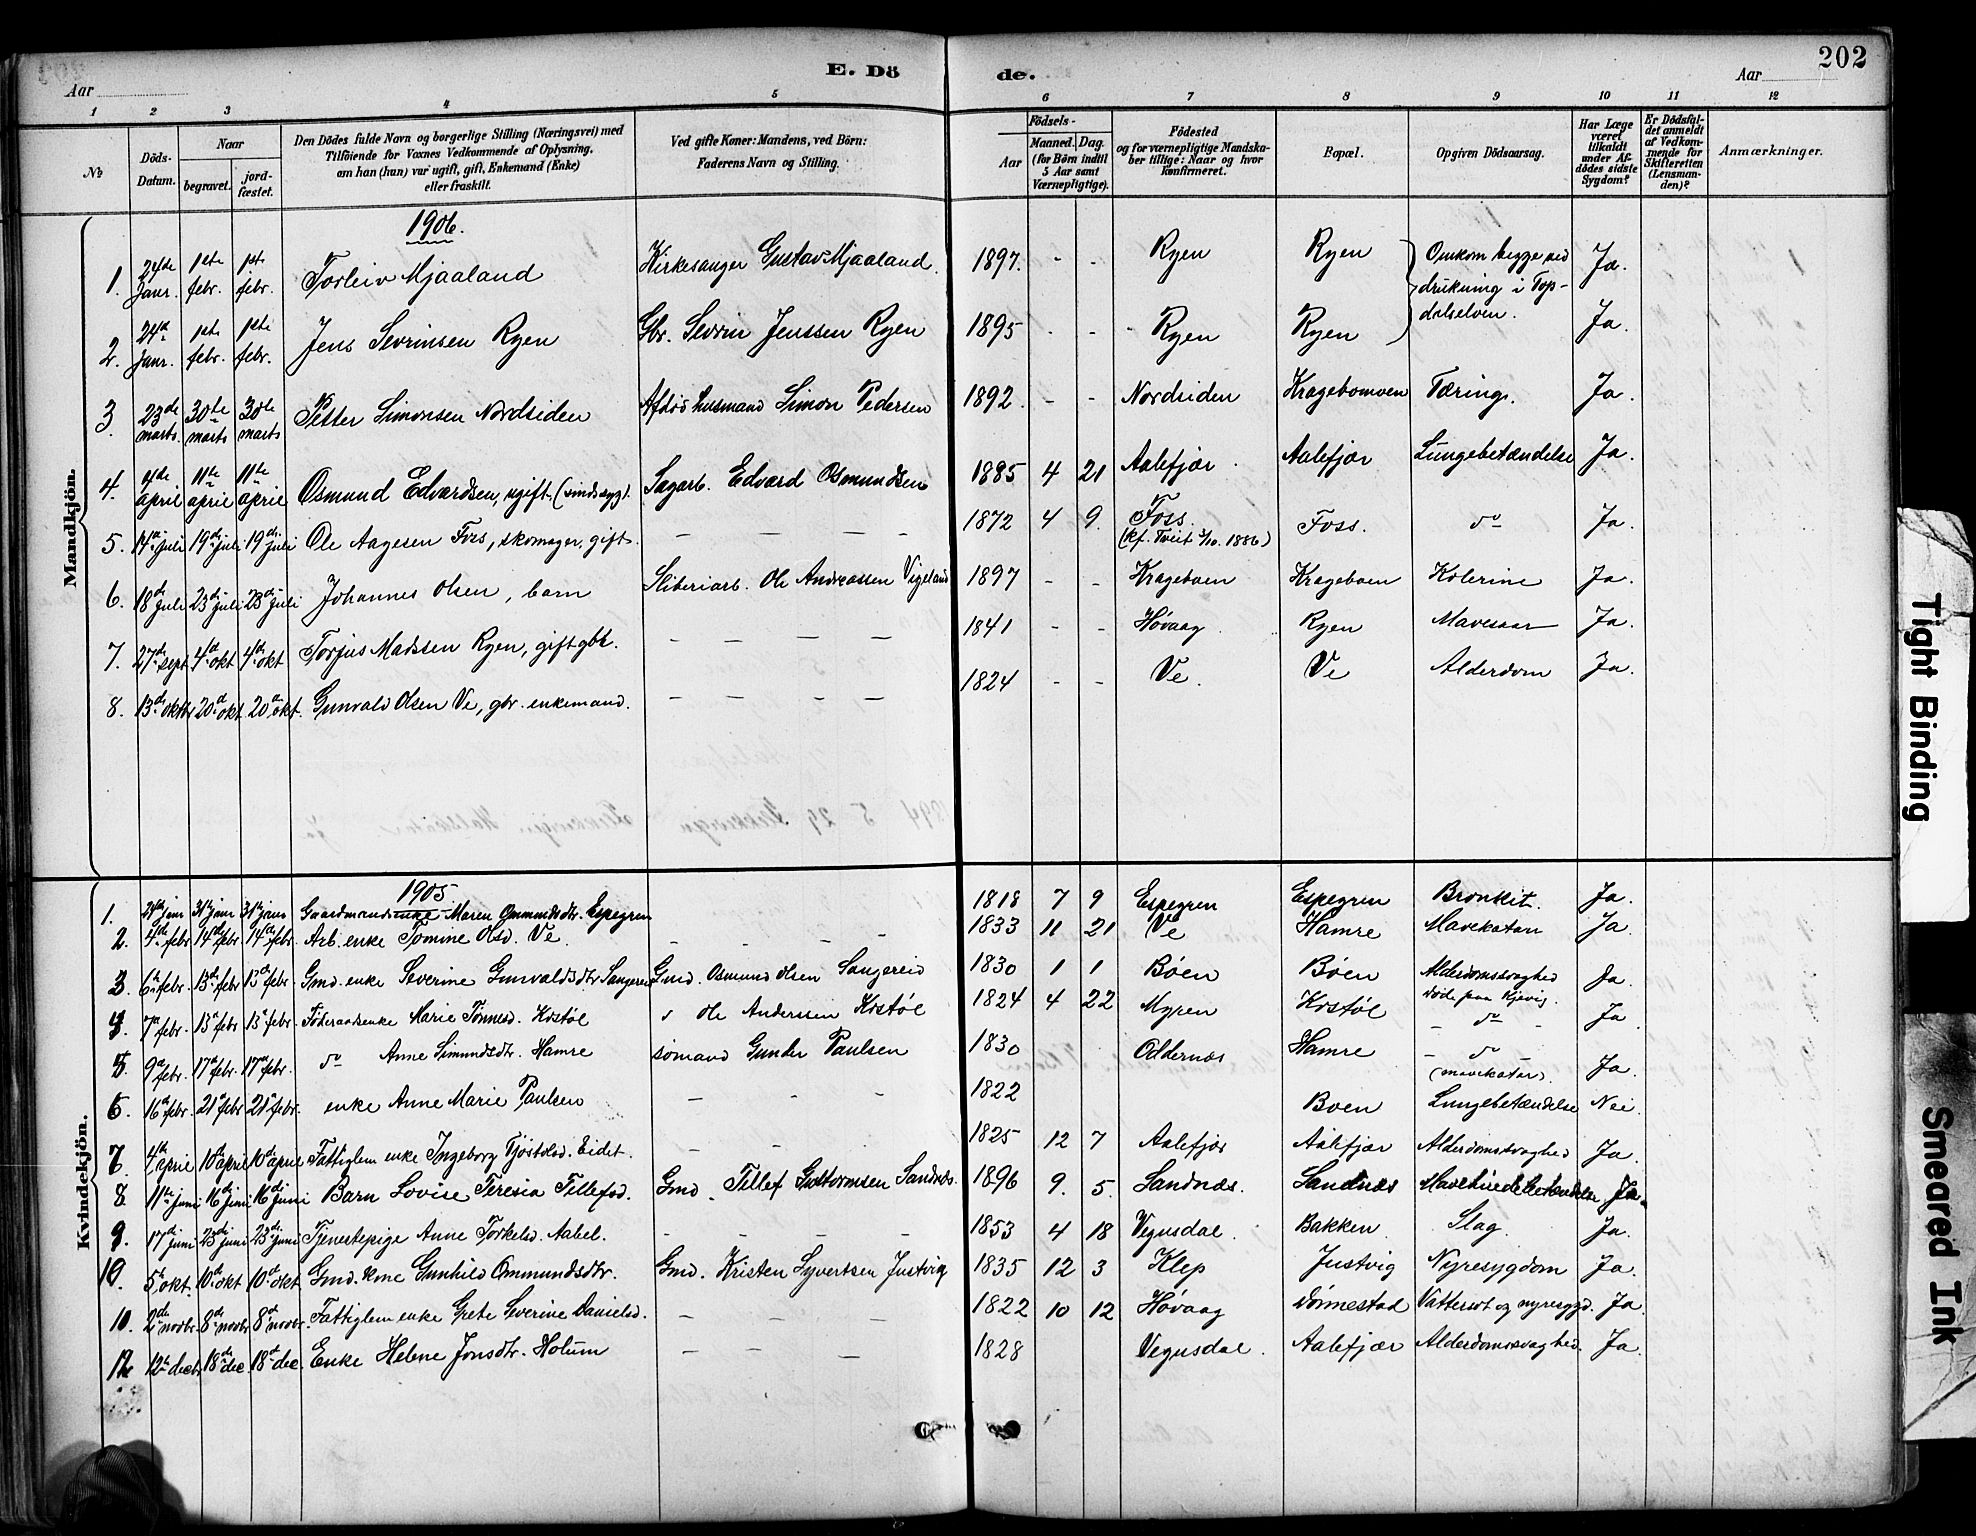 202
Aar
E. Dö
de.
Aar
1 2 3 4 5 6 7 8 9 10 11 12
№
Döds-Datum.
Naar
begravet.
jord-fæstet.
Den Dödes fulde Navn og borgerlige Stilling (Næringsvei) med
Tilföiende for Voxnes Vedkommende af Oplysning,
om han (hun) var ugift, gift, Enkemand (Enke)
eller fraskilt.
Ved gifte Koner: Mandens, ved Börn:
Faderens Navn og Stilling.
Födsels-
Aar
Maaned. Dag.
(for Börn indtil
5 Aar samt
Værnepligtige).
Födested
og for værnepligtige Mandska-
ber tillige: Naar og hvor
konfirmeret.
Bopæl.
Opgiven Dödsaarsag.
Har Læge
været
tilkaldt
under Af-
dödes sidste
Sygdom?
Er Dödsfal-
det anmeldt
af Vedkom-
mende for
Skifteretten
(Lensman-
den)?
Anmærkninger.
Mandkjön.
1906.
1. 24de Janr. 1ste febr. 1ste febr. Torleiv Mjaaland Kirkesanger Gustav Mjaaland. 1897. - - Ryen Ryen Omkom begge ved drukning i Top-dalselven. Ja.
2. 24de Janr. 1ste febr. 1ste febr. Jens Sevrinsen Ryen Gbr. Sevrin Jenssen Ryen 1895 - - Ryen Ryen Ja.
3. 23de marts. 30te marts 30te marts Petter Simonsen Nordsiden Afdøs husmand Simon Pedersen 1892. - - Nordsiden Kragebomoen Tæring. Ja.
4. 4de april 11te april 11te april Osmund Edvardsen, ugift. (sindssyg). Sagarb. Edvard Osmundsen 1885 4 21 Aalefjær. Aalefjær Lungebetændelse Ja.
5. 14de juli 19de juli 19de juli Ole Aagesen Foss, skomager, gift. - - - - 1872 4 9. Foss. (kf. Tveit 3/10. 1886) Foss. do Ja.
6. 18de juli 23de juli 23de juli Johannes Olsen, barn Sliberiarb. Ole Andreassen Vigeland 1897 - - Krageboen Krageboen Kolerine Ja.
7. 27de sept 4de okt 4de okt Torjus Madssen Ryen, gift gbr. - - - - 1841 - - Høvaag. Ryen Mavesaar Ja.
8. 13de oktbr 20de okt. 20de okt. Gunvald Olsen Ve, gbr. enkemand. - - - - 1824 - - Ve. Ve Alderdom Ja.
Kvindekjön.
1905
1. 24de janr 31te janr 31te janr Gaardmandsenke Maren Ommundsdtr. Espegren 1818 7 9 Espegren Espegren Bronkit. Ja.
2. 4de febr 14de febr 14de febr. Arb. enke Tomine Olsd. Ve. - - - - 1833 11 21 Ve Hamre Mavekatarr Ja.
3 6te febr. 13de febr 13de febr. Gmd. enke Severine Gunvaldsdtr Sangereid Gmd. Osmund Olsen Sangereid 1830 1 1 Bøen Bøen Alderdomssvaghed Døde paa Kjevig. Ja.
4 7de febr. 13de febr 13de febr Føderaadsenke Marie Tønnesd. Krstøl Ole Anderssen Krstøl 1824 4 22 Myren Krstøl - do - Ja
5 9de febr. 17de febr. 17de febr. do Anne Simundsdtr. Hamre sømand Gunder Paulsen 1830 Oddernæs Hamre - do - (mavekatar). Ja.
6. 16de febr. 21de febr 21de febr. enke Anne Marie Paulsen - - - 1822 Boen Lungebetændelse Nei.
7 4de april 10de april 10de april Fattiglem enke Ingeborg Tjøstolsd. Eidet. - - 1825 12 7 Aalefjær Aalefjær Alderdomssvaghed Ja.
8 11te juni 16de juni 16de juni Barn Lovise Teresia Tellefsd. Gmd. Tellef Guttormsen Sandnæs. 1896 9. 5. Sandnæs. Sandnæs Mavehindebetændelse Ja.
9. 17de juni 23de juni 23de juni Tjenestepige Anne Torkelsd. Aabel. - - - - 1853 4 18 Vegusdal. Bakken Slag. Ja.
10. 5te okt. 10de okt 10de okt Gmd. kone Gunhild Ommundsdtr. Gmd. Kristen Syvertsen Justvig 1835 12 3 Klep Justvig Nyresygdom Ja.
10. 2de novbr. 8de novbr 8de novbr. Fattiglem enke Grete Severine Danielsd. - - - 1822 10 12 Høvaag Dønnestad Vattersot og nyresygd. Ja.
12 12te decbr 18de dec. 18de dec. Enke Helene Jonsdtr. Holum - - - 1828 Vegusdal. Aalefjær Alderdomssvaghed. Ja.
Tight Binding
Smeared Ink